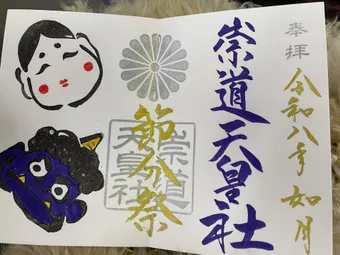 奉拝
令和八年如月
崇道天皇社
節分祭
崇道
天皇社